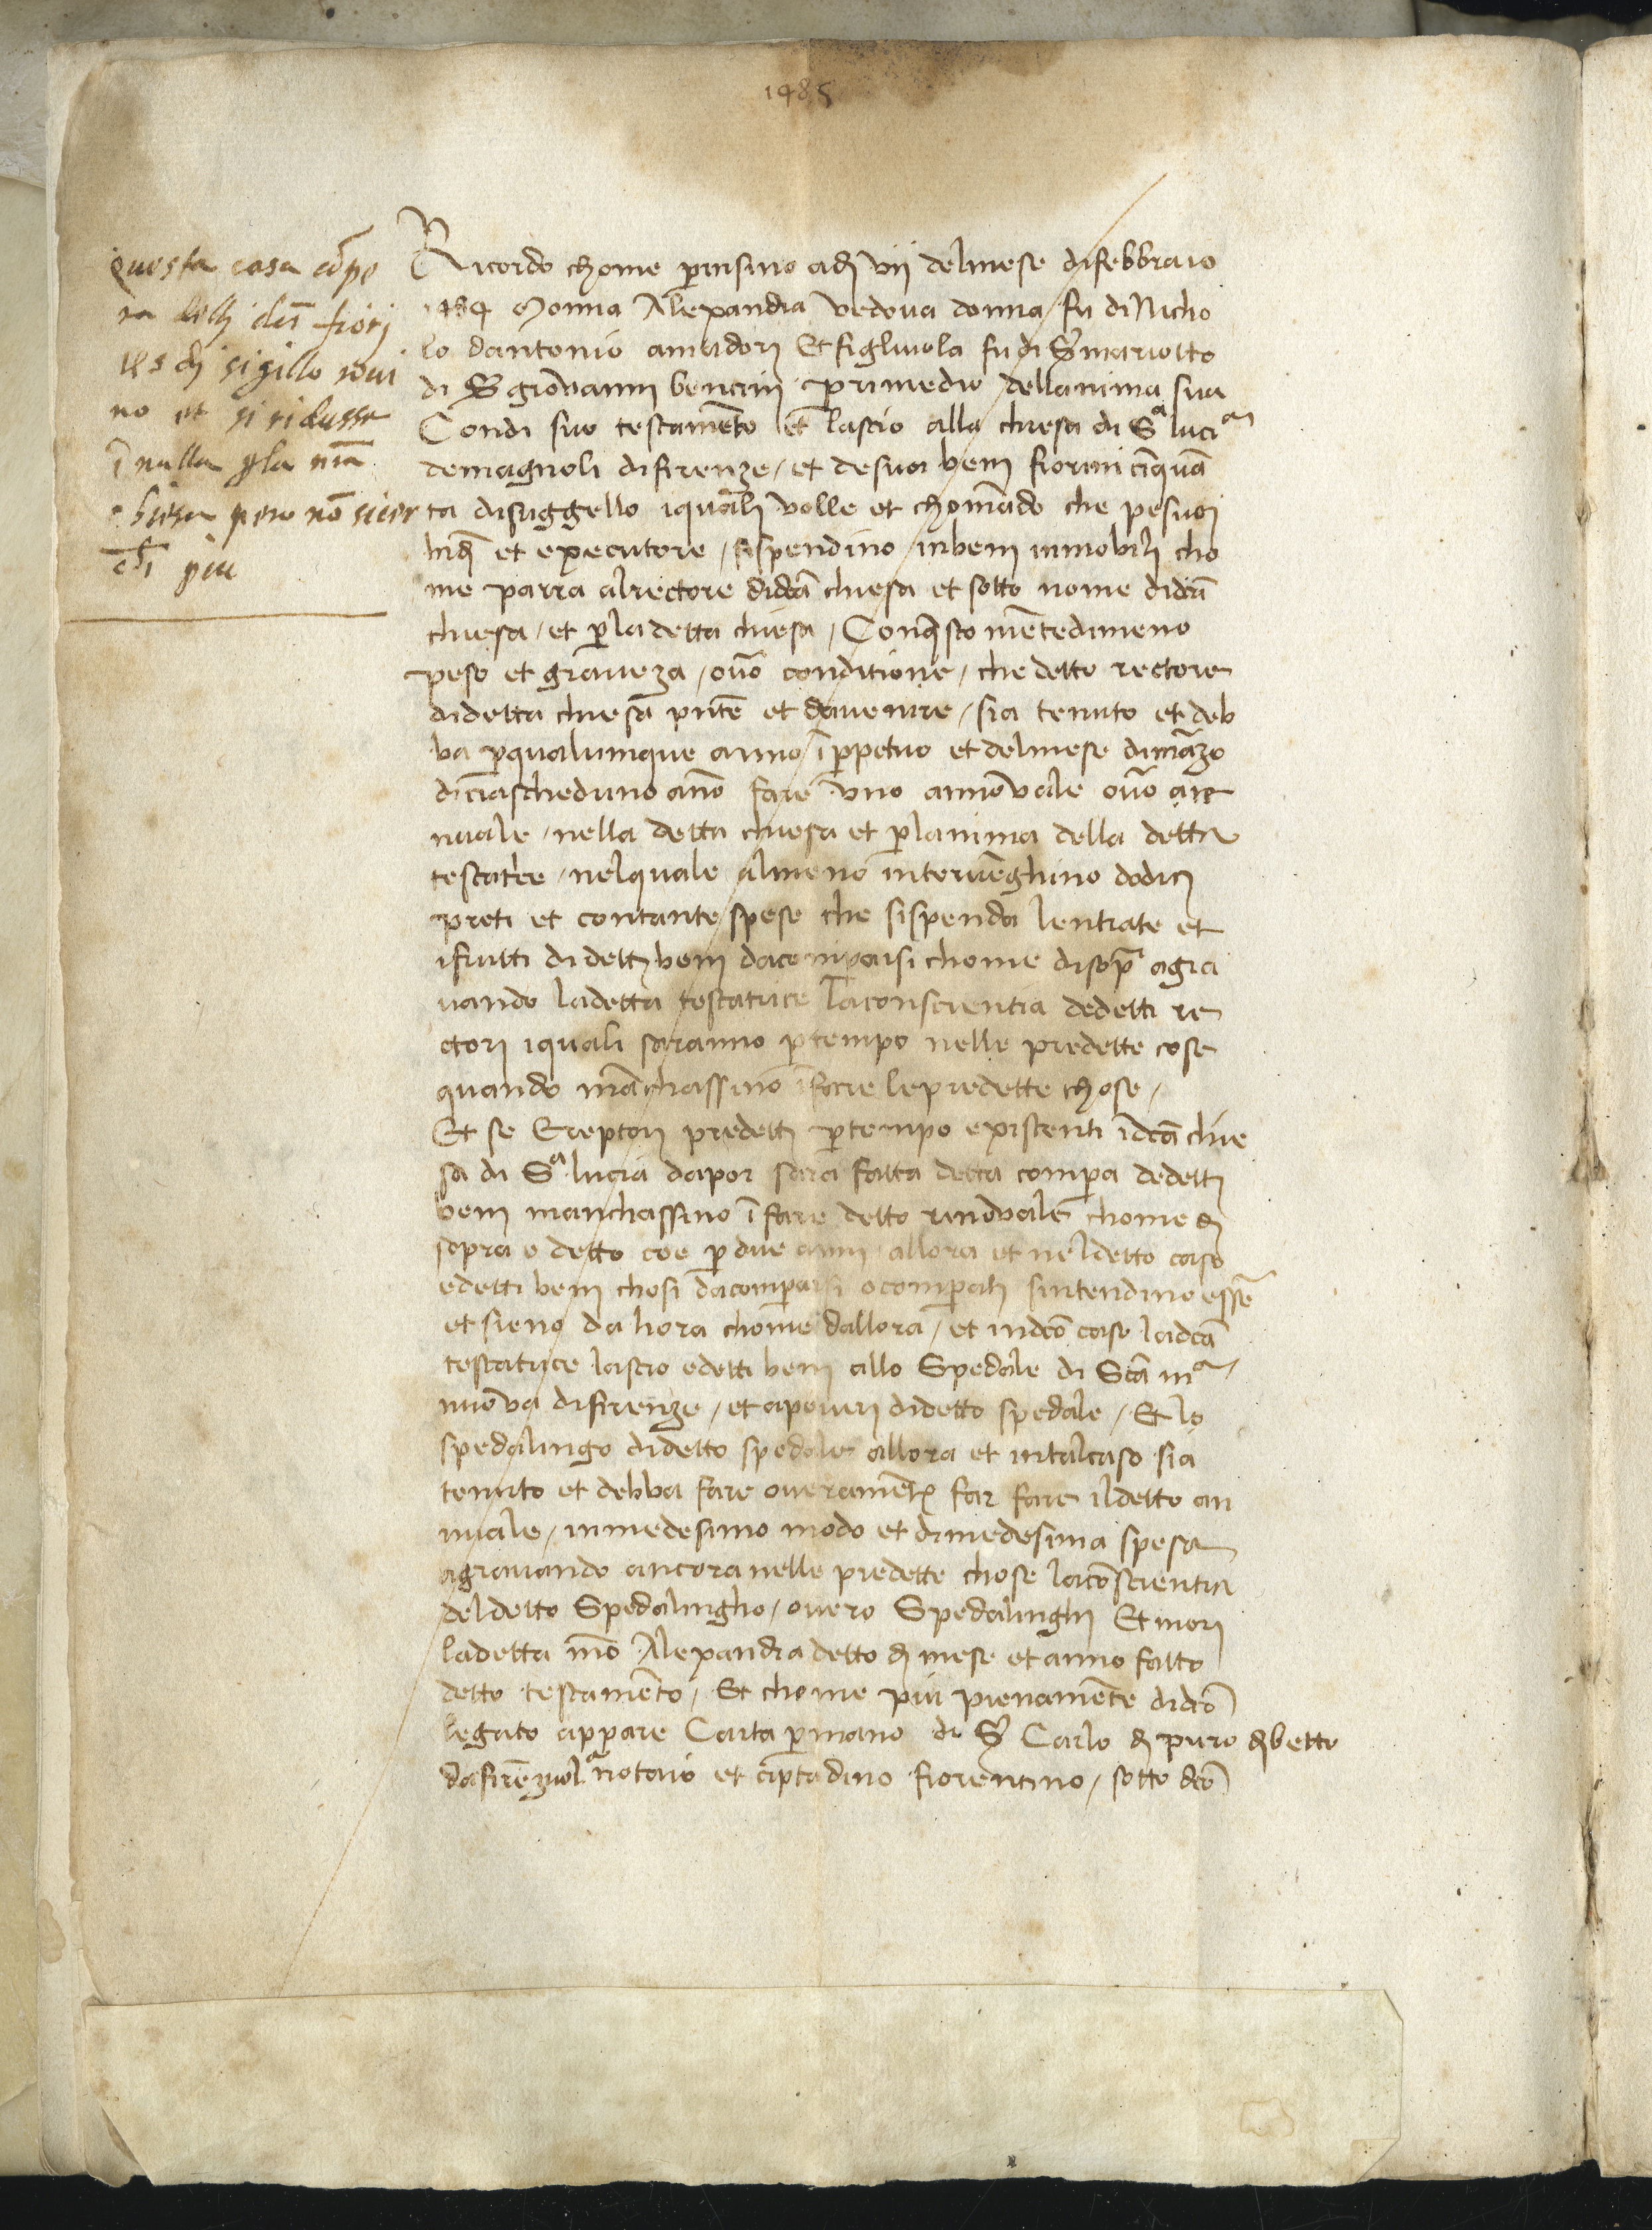 1485
Questa casa cōpe
ra delli decī fiori
nes di sigillo roui
no et si ridusse
ī nulla p la nrā
chiesa pero nō si cer
chi piu
Ricordo chome perinsino adi vii delmese difebbraio
1484 Monna Alexandra vedova donna fu di Nicho
lo dantonio amadori Et figliuola fu di Sr mariotto
di Sr giovanni bencini p rimedio dellanima sua
Condi suo testamēto et lascio alla chiesa di Sa lucia
demagnoli difirenze / et desuoi beni fiorini cinquā
ta disuggello iquali volle et chomādo che pesuoi
et executore / sispendino inbeni inmobili cho
me parra alrectore didcā chiesa et sotto nome didcā
chiesa / et p ladetta chiesa / Conqsto nientedimeno
peso et graveza / ovō conditione / che detto rectore
didetta chiesa pntē et davenire / sia tenuto et deb
ba p qualumque anno ī perpetuo et delmese dimarzo
diciascheduno ano fare uno annovale ovō an
nuale / nella detta chiesa et p lanima della detta
testatrice / nelquale almeno intervēghino dodici
preti et contante spese che sispenda lentrate et
ifrutti didetti beni dacomperarsi chome disopra agra
vando ladetta testatrice laconscientia dedetti re
ctori iquali saranno p tempo nelle predette cose
quando māchassino ī fare lepredette chose /
Et se Erectori predetti p tempo existenti ī dcā chie
sa di Sa lucia dapoi sara fatta detta compera dedetti
beni manchassino ī fare detto rinovale chome di
sopra e detto coe p due anni allora et neldetto caso
edetti beni chosi dacomperarsi o comperati sintendino essē
et sieno da hora chome dallora / et indcō caso ladcā
testatrice lascio edetti beni allo Spedale di Scā ma
nuova difirenze / et apoveri didetto spedale / Et lo
spedalingo didetto spedale allora et intalcaso sia
tenuto et debba fare overamēte far fare ildetto an
nuale / inmedesimo modo et dimedesima spesa
agravando ancora nelle predette chose lacōscientia
deldetto Spedalingho / overo Spedalinghi Et mori
ladetta mō Alexandra detto di mese et anno fatto
detto testamēto / Et chome piu pienamēte didcō
legato appare Carta p mano di Sr Carlo di piero di betto
dafirēzuola notaio et ciptadino fiorentino / sotto dcō